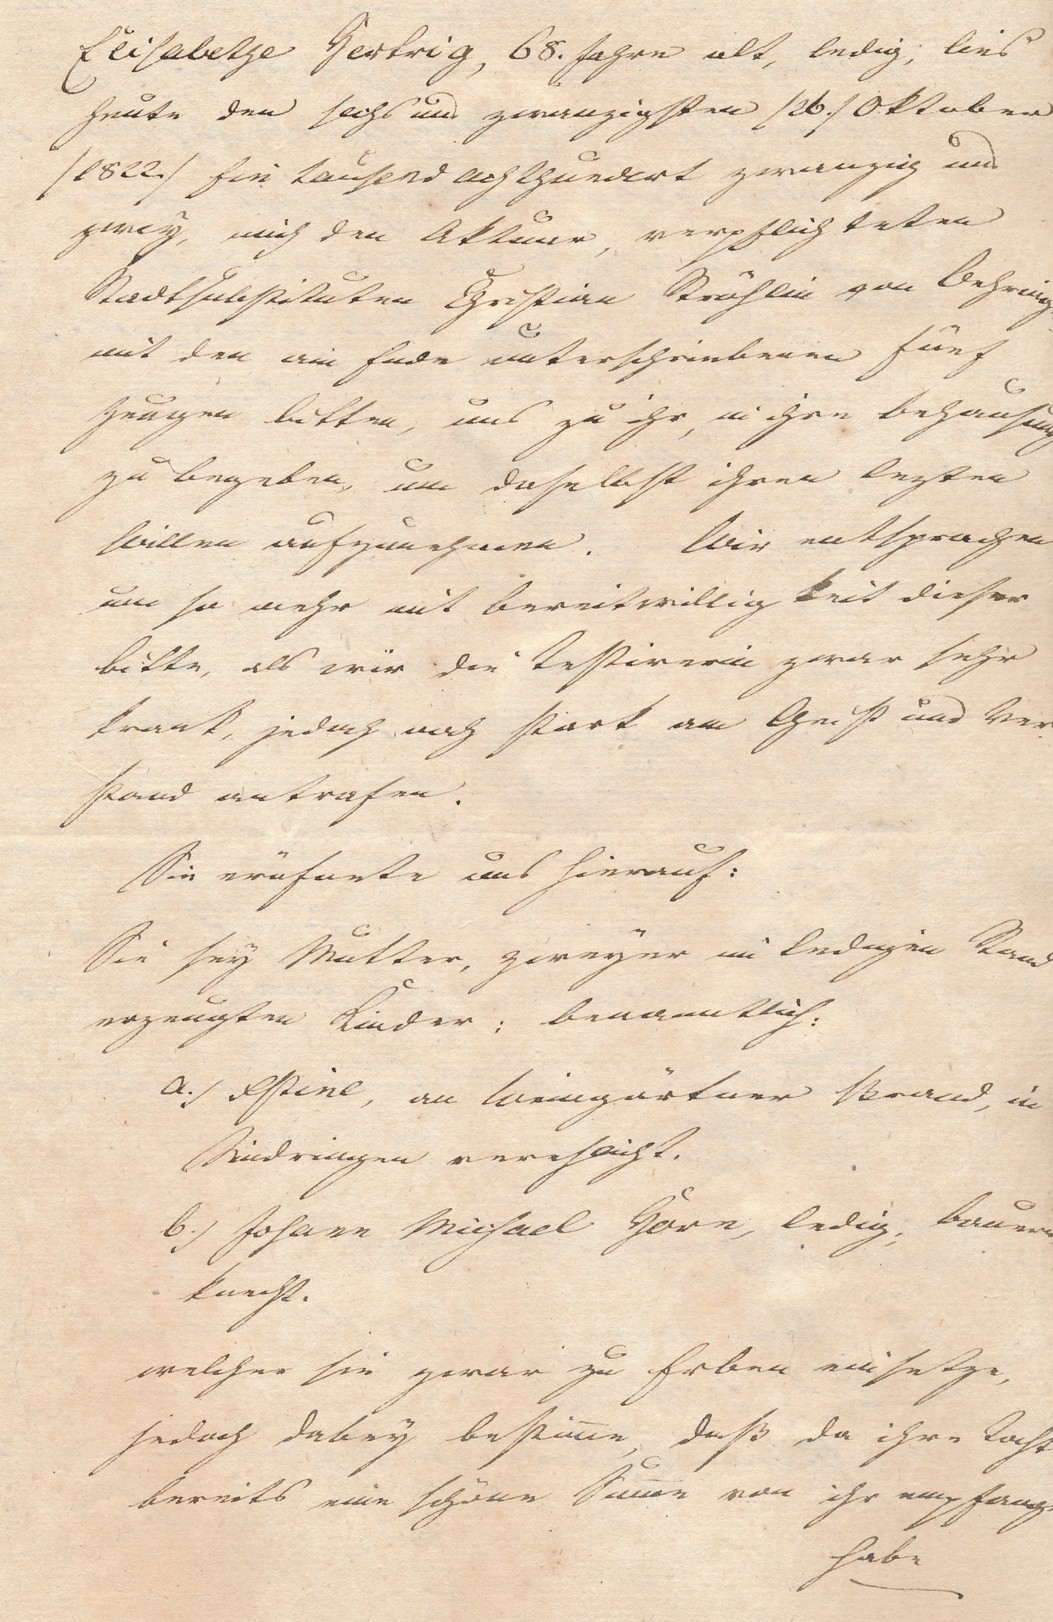 Elisabethe Hertrig, 68. Jahre alt, ledig, lies
heute den sechs und zwanzigsten /26./ Oktober
/1822./ Ein tausend achthundert zwanzig und
zwey, mich den Aktuar, verpflichteten
Stadtsubstituten Christian Ströhlin von Oehring-
mit den am Ende unterschriebenen fünf
Zeugen bitten, uns zu ihr, in ihre Behausung
zu begeben, um daselbst ihren lezten
Willen aufzunehmen. Wir entsprachen
um so mehr mit Bereitwilligkeit dieser
Bitte, als wir die Testirerin zwar sehr
krank, jedoch noch stark an Geist und Ver-
stand antrafen.
Sie eröfnete uns hierauf:
Sie sey Mutter, zweyer im ledigen Stand
erzeugten Kinder; benanntlich:
a.) Estine, an Weingärtner Brand, in
Sindringen verehlicht.
b.) Johann Michael Horn, ledig, Bauern
knecht.
welcher sie zwar zu Erben einsetze,
jedoch dabey bestim̄e, daß da ihre Tocht
bereits eine schöne Sum̄e von ihr empfang
habe